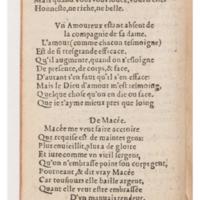 Honneste, ne riche, ne belle.
Vn Amoureux estant absent de
la compagnie de sa dame.
L'amour (comme chacun tesmoigne)
Est de si treigrande efficace.
Qu'il augmente, quand on s'eslogne
De presence, de corps, & face,
D'autant s'en faut qu'il s'en efface:
Mais le Dieu d'amour m'est tesmoing,
Quelque chose qu'on die ou face,
Que ie t'ayme mieux pres que loing
De Macée.
Macée me veut faire accroire
Que requise est de maintes gens:
Plus enuieillit, plus a de gloire
Et iure comme vn vieil sergent,
Qu'on n'embrasse point son corps gent,
Pour neant, & dit vray Macée
Car tousiours elle baille argent,
Quant elle veut estre embrassée